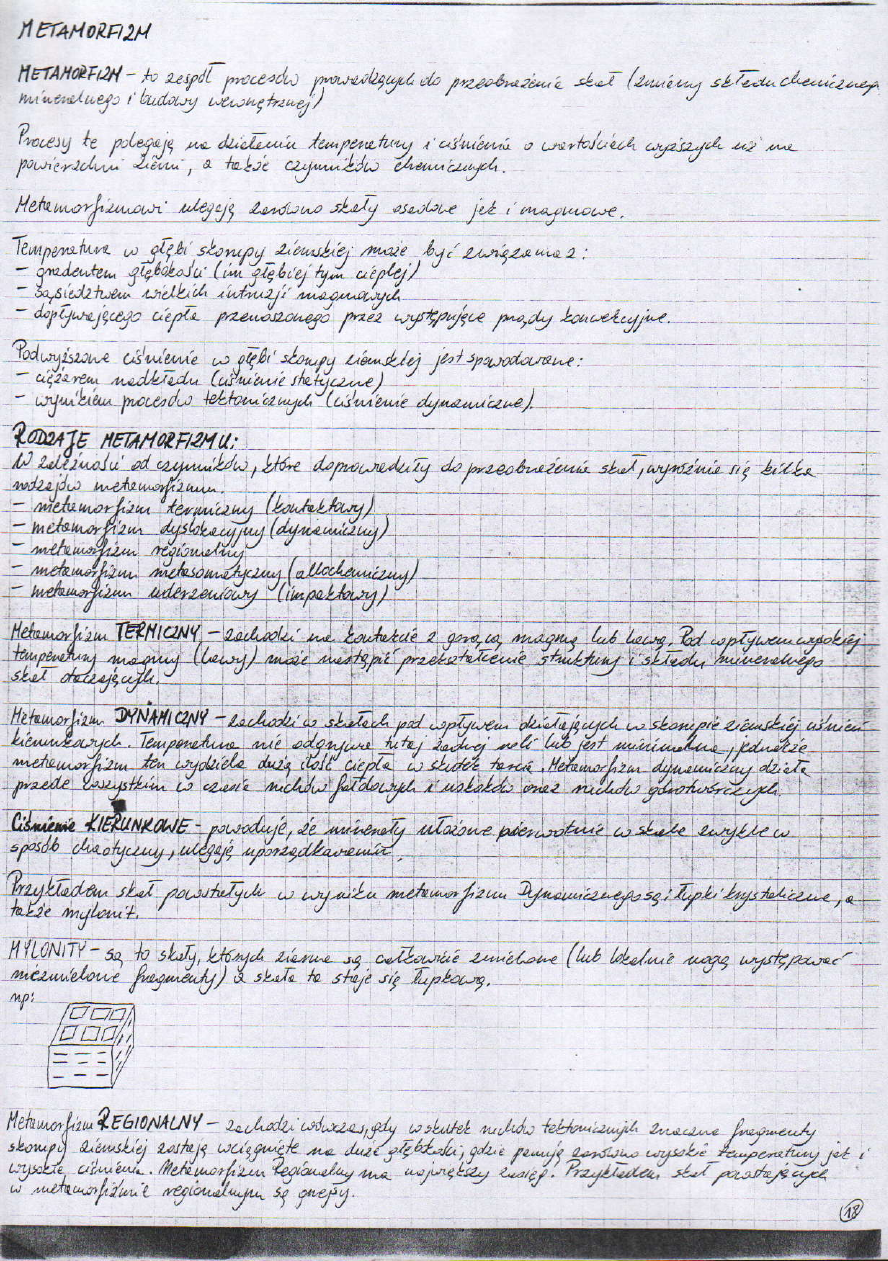 METAMORFIZM
METAMORFIZM – to zespół procesów prowadzących do przeobrażenia skał (zmiany składu chemicznego,
mineralnego i budowy wewnętrznej)
Procesy te polegają na działaniu temperatury i ciśnienia o wartościach wyższych niż na
powierzchni ziemi, a także czynników chemicznych.
Metamorfizmowi ulegają zarówno skały osadowe jak i magmowe.
Temperatura w głębi skorupy ziemskiej może być związana z:
– gradentem głębokości (im głębiej tym cieplej)
– sąsiedztwem wielkich intruzji magmowych
– dopływającego ciepła przenoszonego przez występujące prądy konwekcyjne.
Podwyższone ciśnienie w głębi skorupy ziemskiej jest spowodowane:
– ciężarem nadkładu (ciśnienie statyczne)
– wynikiem procesów tektonicznych (ciśnienie dynamiczne).
RODZAJE METAMORFIZMU:
W zależności od czynników, które doprowadziły do przeobrażenia skał, wyróżnia się kilka
rodzajów metamorfizmu.
– metamorfizm termiczny (kontaktowy)
– metamorfizm dyslokacyjny (dynamiczny)
– metamorfizm regionalny
– metamorfizm metasomatyczny (allochemiczny)
– metamorfizm uderzeniowy (impaktowy)
Metamorfizm TERMICZNY – zachodzi na kontakcie z gorącą magmą lub lawą. Pod wpływem wysokiej
temperatury magmy (lawy) może nastąpić przekształcenie struktury i składu mineralnego
skał otaczających.
Metamorfizm DYNAMICZNY – zachodzi w skałach pod wpływem działających w skorupie ziemskiej ciśnień
kierunkowych. Temperatura nie odgrywa tutaj żadnej roli lub jest minimalna, jednakże
metamorfizm ten wydziela dużą ilość ciepła w skutek tarcia. Metamorfizm dynamiczny działa
przede wszystkim w czasie ruchów fałdowych i uskoków oraz ruchów górotwórczych
Ciśnienie KIERUNKOWE – powoduje, że minerały ułożone pierwotnie w skale zwykle w
sposób chaotyczny, ulegają uporządkowaniu.
Przykładem skał powstałych w wyniku metamorfizmu Dynamicznego są łupki krystaliczne, a
także mylonit.
MYLONITY – są to skały, których ziarna są całkowicie zmielone (lub lokalnie mogą występować
niezmielone fragmenty) a skała ta staje się łupkową.
np:
Metamorfizm REGIONALNY – zachodzi wówczas, gdy wskutek ruchów tektonicznych znaczne fragmenty
skorupy ziemskiej zostają wciągnięte na duże głębokości, gdzie panują zarówno wysokie temperatury jak i
wysokie ciśnienia. Metamorfizm Regionalny ma największy zasięg. Przykładem skał powstających
w metamorfizmie regionalnym są gnejsy.
18